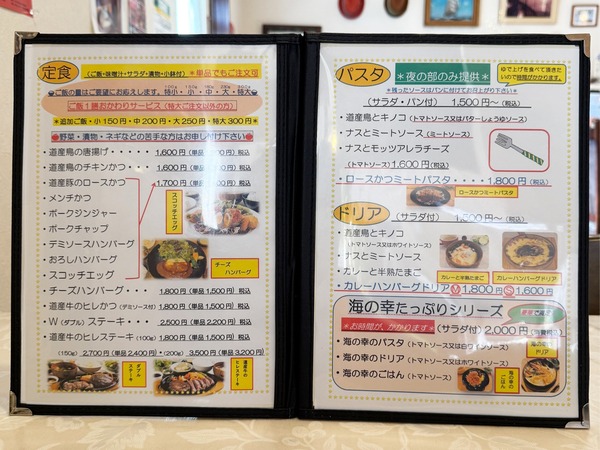 定食
(ご飯・味噌汁・サラダ・漬物・小鉢付) *単品でもご注文可
ご飯の量はご要望にお応えします。 特小・小・中・大・特大
ご飯1膳おかわりサービス(特大ご注文以外の方)
*追加ご飯・小150円・中200円・大250円・特大300円*
野菜・漬物・ネギなどの苦手な方はお申し付け下さい
・道産鳥の唐揚げ・・・・・1,600円(単品 税込
・道産鳥のチキンかつ・・・・1,600円(単品 税込
・道産豚のロースかつ 1,700円(単品 税込
・メンチかつ
・ポークジンジャー
・ポークチャップ
・デミソースハンバーグ
・おろしハンバーグ
・スコッチエッグ
スコッチエッグ
チーズハンバーグ
・チーズハンバーグ・・・ 1,800円(単品1,500円)税込
・道産牛のヒレかつ(デミソース付) 1,800円(単品1,500円)税込
・W(ダブル)ステーキ・・・2,500円(単品2,200円)税込
・道産牛のヒレステーキ(100g) 1,800円(単品1,500円)税込
(150g) 2,700円(単品2,400円)・(200g) 3,500円(単品3,200円)
ダブルステーキ
道産牛のヒレステーキ
パスタ
*夜の部のみ提供*
ゆで上げを食べて頂きたいので時間がかかります。
*残ったソースはパンに付けてお召し上がり下さい*
(サラダ・パン付) 1,500円~(税込)
・道産鳥とキノコ(トマトソース又はバターしょうゆソース)
・ナスとミートソース(ミートソース)
・ナスとモッツァレラチーズ
(トマトソース)1,600円(税込)
・ロースかつミートパスタ・・・・1,800円(税込)
ロースかつミートパスタ
ドリア
(サラダ付) 1,500円~(税込)
・道産鳥とキノコ
(トマトソース又はホワイトソース)
・ナスとミートソース
・カレーと半熟たまご
カレーと半熟たまご
カレーハンバーグドリア
・カレーハンバーグドリア Ⓜ1,800円 Ⓢ1,600円
海の幸たっぷりシリーズ
*お時間が、かかります*(サラダ付)2,000円(税込)
・海の幸のパスタ(トマトソース又は白ワインソース)
・海の幸のドリア(トマトソース又はホワイトソース)
・海の幸のごはん(トマトソース)
海の幸のごはん
海の幸のドリア